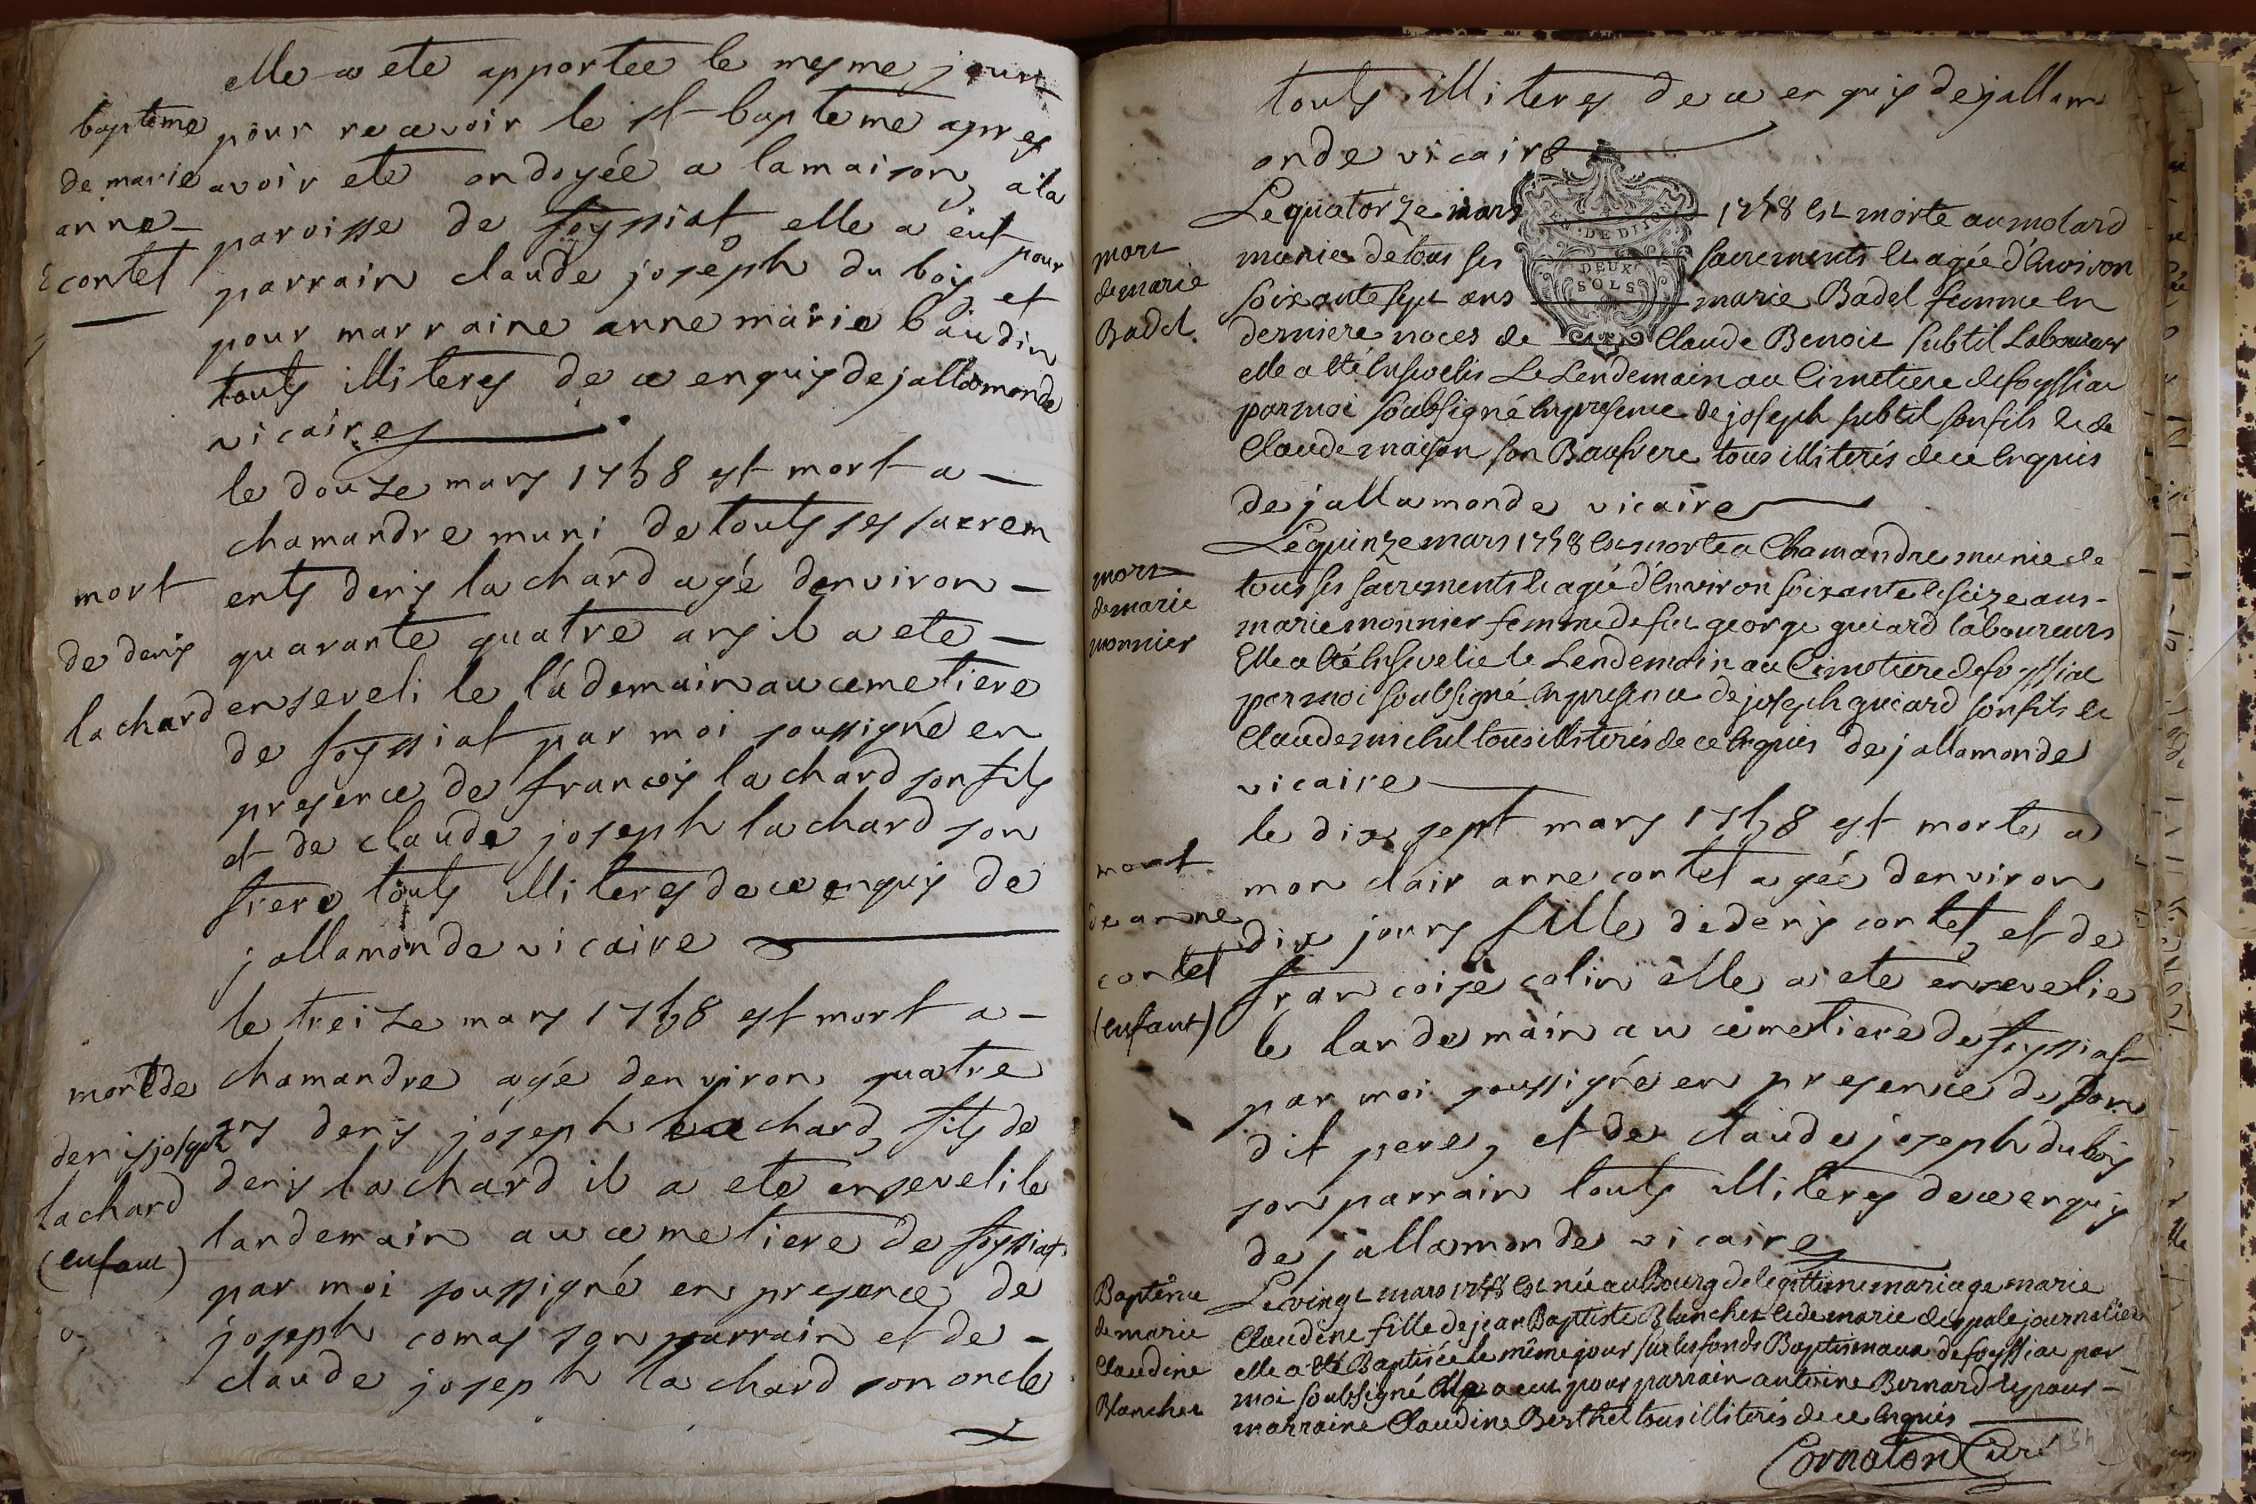 elle a ete apportee le mesme jour
baptême
de marie
anne
contet
pour recevoir le st baptême apres
avoir ete ondoyée a la maison, a la
paroisse de foyssiat, elle a eut pour
parrain claude joseph du bois et
pour marraine anne marie baudin
touts illiterés de ce enquis dejallamonde
vicaire
le douze mars 1758 est mort a
chamandre muni de touts ses sacrem
mort
de denis
lachard
ents denis lachard agé denviron
quarante quatre ans il a ete
enseveli le lâdemain au cemetiere
de foyssiat par moi soussigné en
presence de francois lachard son fils
et de claude joseph lachard son
frere touts illiterés de ce enquis de
jallamonde vicaire
le treize mars 1758 est mort a
mort de
denis joseph
lachard
(enfant)
chamandre agé denviron quatre
ans denis joseph lachard, fils de
denis lachard il a ete enseveli le
landemain au cemetiere de foyssiat
par moi soussigné en presence de
joseph comas son parrain et de
claude joseph lachard son oncle
touts illiterés de ce enquis dejallam
onde vicaire
GEN DE DIJON
DEUX
SOLS
mort
de marie
Badel
Le quatorze mars 1758 est morte au molard
munie de tous ses sacrements et agée d'environ
soixante sept ans marie Badel femme en
derniere noces de Claude Benoit subtil Laboureur
elle a été ensevelis Le Lendemain au Cimetiere de foyssiat
par moi soubsigné en presence de joseph subtil son fils et de
Claude maison son Baufrere tous illiterés de ce enquis
de jallamonde vicaire
mort
de marie
monnier
Le quinze mars 1758 est morte a Chamandre munie de
tous ses sacrements et agée d'environ soixante et seize ans
marie monnier femme de feu george guiard laboureurs
Elle a été ensevelie le Lendemain au Cimetiere de foyssiat
par moi soubsigné en presence de joseph guiard son fils et
Claude michel tous illiterés de ce enquis de jallamonde
vicaire
mort
de anne
contet
(enfant)
le dix sept mars 1758 est morte a
mon clair anne contet agée denviron
dix jours fille de denis contet, et de
francoise colin elle a ete ensevelie
le landemain au cemetiere de foyssiat
par moi soussigné en presence de son
dit pere, et de claude joseph du bois
son parrain touts illiterés de ce enquis
de jallamonde vicaire
Baptême
de marie
Claudine
Blanchet
Le vingt mars 1758 est née au Bourg de legittime mariage marie
Claudine fille de jean Baptiste Blanchet et de marie journalier
elle a été Baptisée le même jour sur les fonds Baptismaux de foyssiat par
moi soubsigné Elle a eut pour parrain antoine Bernard et pour
marraine Claudine Berthet tous illiterés de ce enquis
Cornaton Curé